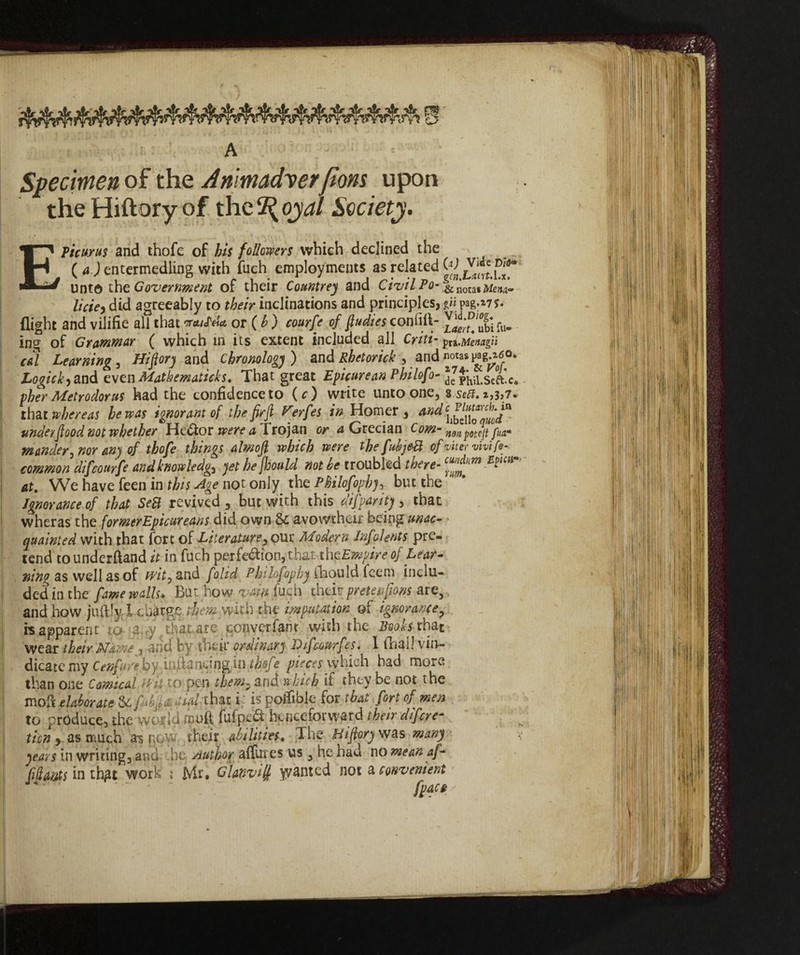 A
Specimen of the Animadverſions upon
the Hiſtory of the Royal Society.
EPicurus and thoſe of his followers which declined the
(a) entermedling with ſuch employments as related
unto the Government of their Countrey and Civil Po-
licie, did agreeably to their inclinations and principles,
ſlight and vilifie all that παιδεία or (b) courſe of ſtudies conſiſt-
ing of Grammar (which in its extent included all Criti-
cal Learning, Hiſtory and Chronology) and Rhetorick, and
Logick, and even Mathematicks. That great Epicurean Philoſo-
pher Metrodorus had the confidence to (c) write unto one,
that whereas he was ignorant of the firſt Verſes in Homer, and
underſtood not whether Hector were a Trojan or a Grecian Com-
mander, nor any of thoſe things almoſt which were the ſubject of
common diſcourſe and knowledg, yet he ſhould not be troubled there-
at. We have ſeen in this Age not only the Philoſophy, but the
Ignorance of that Sect revived, but with this diſparity, that
wheras the former Epicureans did own & avow their being unac-
quainted with that ſort of Literature, our Modern Inſolents pre-
tend to underſtand it in ſuch perfection, that the Empire of Lear-
ning as well as of wit, and ſolid Philoſophy ſhould ſeem inclu-
ded in the ſame walls. But how vain ſuch their pretenſions are,
and how juſtly I charge them with the imputation of ignorance,
is apparent to any that are converſant with the Books that
wear their Name, and by their ordinary Diſcourſes. I ſhall vin-
dicate my Cenſure by inſtancing in thoſe pieces which had more
than one Comical Wit to pen them, and which if they be not the
moſt elaborate & ſubſtantial that it is poſſible for that ſort of men
to produce, the world muſt ſuſpect henceforward their diſcre-
tion, as much as now their abilities. The Hiſtory was many
years in writing, and the Author aſſures us, he had no mean aſ-
ſiſtants in that work: Mr. Glanvill wanted not a convenient
ſpace
(a) Vide Dio-
gen. Laert. l.x.
& notas Mena-
gii pag. 275.
Vid. Diog.
Laert. ubi ſu-
pra. Menagii
notas pag. 260.
274. & Voſ.
de Phil. Sect. c.
8 Sect. 2,3,7.
c Plutarch. in
libello quod
non poteſt ſua-
viter vivi ſe-
cundum Epicu-
rum.